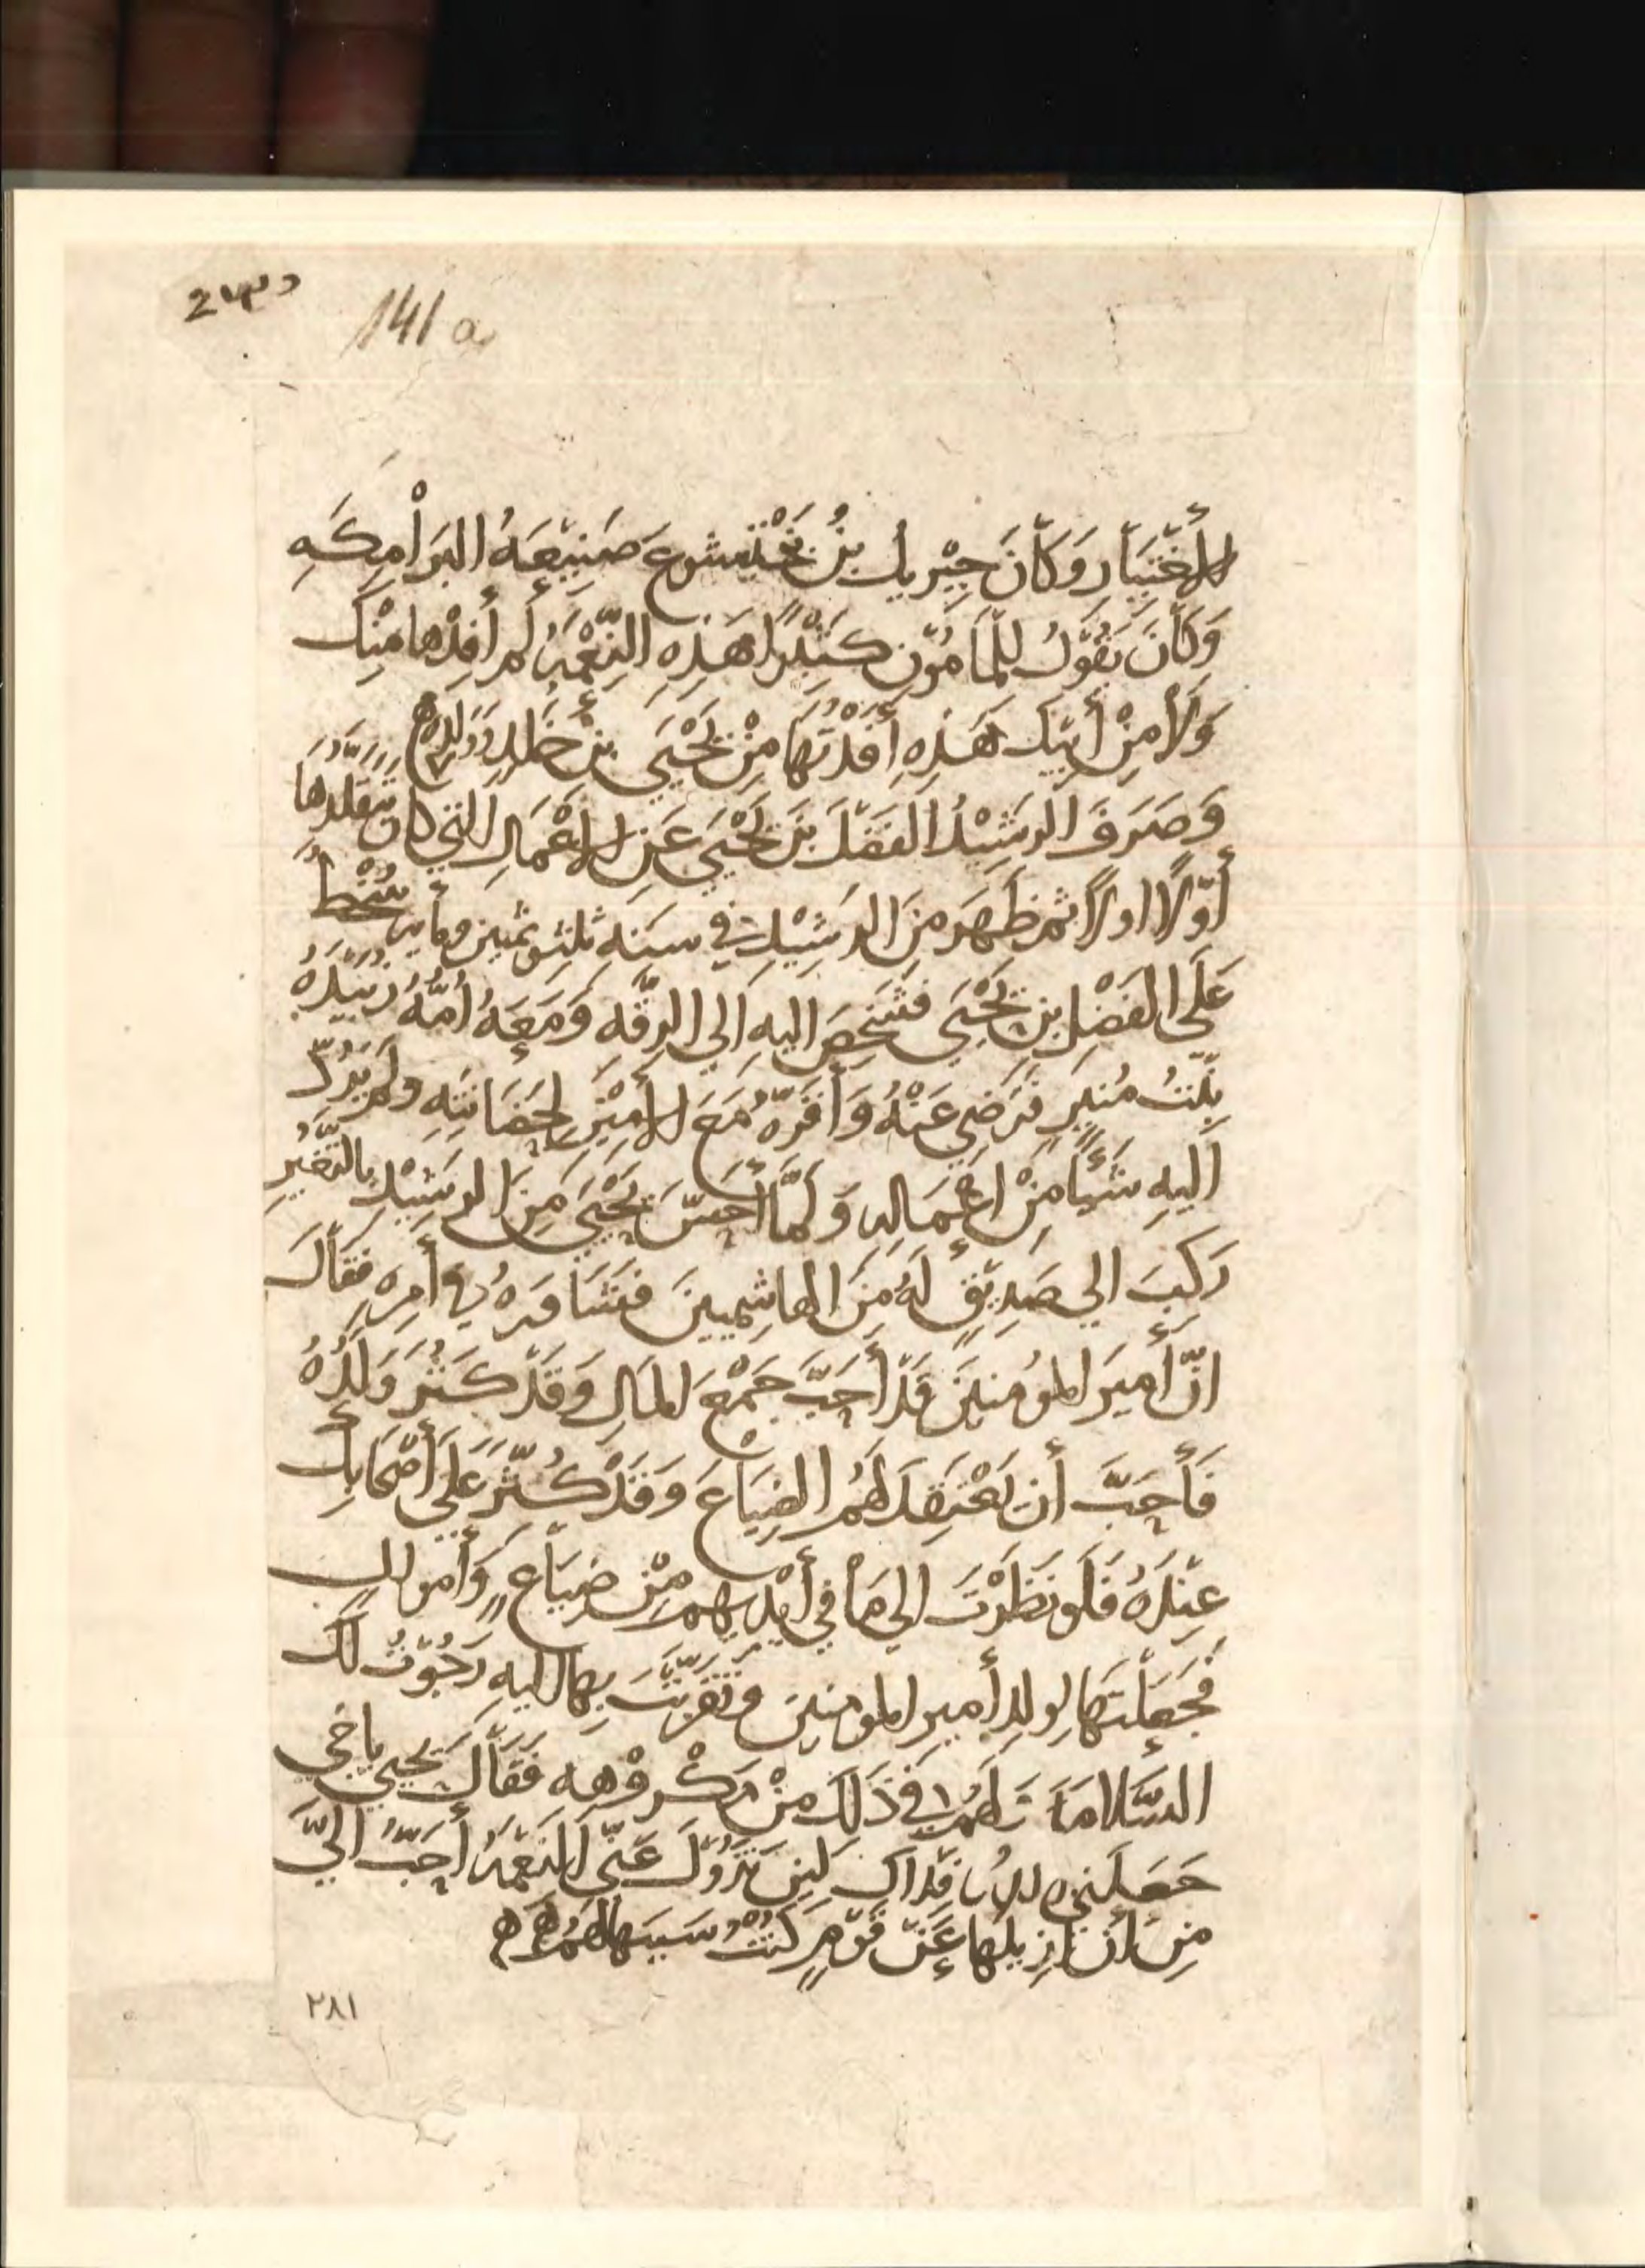 141 a
الأَغْنِيَاءِ وَكَانَ جِبْرِيلُ بنُ بَخْتيشوعَ صَنِيْعَةُ البَرَامِكَهِ
وَكَانَ يَقُوْلُ لِلْمَأمُوْنِ كَثِيْرًا هَذِهِ النِّعْمَةُ لم أُفِدْها مِنْكَ
وَلَا مِنْ أَبِيْكَ هَذِهِ أَفَدْتُهَا مِنْ يَحْيَى بنِ خَالِدٍ وَوَلَدِهِ
وَصَرَفَ الرَشِيْدُ الفَضْلَ بنَ يَحْيَى عَنِ الأَعْمَالِ التي كانَ يَتَقَلَّدُهَا
أَوَّلًا اولًا ثم ظَهَرَ مِنَ الرَشِيْدِ في سَنَه ثلثٍ وثمنين ومأيه سُخْطٌ
عَلَى الفَضْلِ بنِ يَحْيَى فشَخَصَ اليهِ الي الرقَّه وَمَعَهُ أُمَّهُ زُبَيْدَهُ
بِنْتُ مُنِيرٍ فَرَضِيَ عَنْهُ وَأَقَرَّهُ مَعَ الأَمِيْنِ لِحَضَانَتِهِ ولم يَرُدَّ
اليهِ شَيْئًا مِنْ اعْمَالِهِ وَلَمَّا أَحَسَّ يَحْيَى مِنَ الرشِيْدِ بالتَغَيُّرِ
رَكِبَ الي صَدِيْقٍ لَهُ مِنَ الهاشِمِيينَ فَشَاوَرَهُ في أَمرِهِ فَقَالَ
انّ أَمِيرَ المُؤمنينَ قَدْ أَحَبَّ جَمْعَ المَالِ وَقَدْ كَثُرَ وَلَدُهُ
فَأَحَبَّ أن يَعْتَقِدَ لَهُمُ الضِيَاعَ وَقَدْ كُثِّرَ عَلَى أَصْحَابِكَ
عِنْدَهُ فَلَو نَظَرْتَ الي مَا في أَيْدِيهِم مِنْ ضِيَاعٍ وَأَموالٍ
فَجَعَلْتَهَا لِوَلَدِ أَمير المومنين وتَقَرَّبْتَ بِهَا اليهِ رَجَوْتُ لَكَ
السَّلامَةَ وَلَهُم في ذَلكَ مِنْ مَكْرُوْهه فَقَالَ يَحْيَى يا خي
جَعَلَني اللهُ فِدَاكَ لَئِنْ تَزُوْلَ عَنّي النِعْمَةُ أَحَبُّ الَيَّ
مِنْ أنْ ازِيلَهَا عَنْ قَوْمٍ كُنْتُ سَبَبَهَا لَهُم
٢٨١